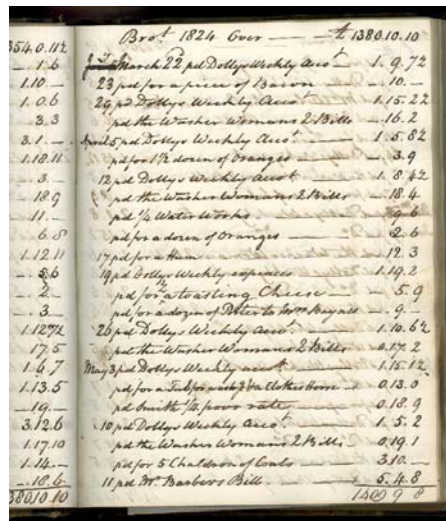 354.0.11½
1.6
1.10.—
1.0.6
3.3
3.1.—
1.18.11
3.—
18.9
11.—
6.8
1.12.11
5.6
2.—
3.—
1.12.7½
17.5
1.6.7
1.13.5
19.—
3.12.6
1.17.10
1.14.—
18.6
1380.10.10
Brot 1824 Over — £ 1380.10.10
March 22 pd Dollys Weekly Acct 1.9.7½
23 pd for a piece of Bacon — 10.—
29 pd Dollys Weekly Acct 1.15.2½
pd the Washer Womans 2 Bills — 16.2
April 5 pd Dollys Weekly Acct — 1.5.8½
pd for 1½ dozen of Oranges — 3.9
12 pd Dollys Weekly Acct 1.8.4½
pd the Washer Womans 2 Bills — 18.4
pd ¼ Water Works — 9.6
pd for a dozen of Oranges — 2.6
17 pd for a Ham — 12.3
19 pd Dollys Weekly expences 1.19.2
pd for ½ a toasting Cheese — 5.9
pd for a dozen of Porter to Mrs Baynes — 9.—
26 pd Dollys Weekly Acct — 1.10.6½
pd the Washer Womans 2 Bills 0.17.2
May 3 pd Dollys Weekly acct — 1.15.1½
pd for a Tub for wash & a Clothes Horse — 0.13.0
pd Smith ¼ poor rate — 0.18.9
10 pd Dollys Weekly Acct — 1.5.2
pd the Washer Womans 2 Bills 0.19.1
pd for 5 Chaldron of Coals 3.10.—
11 pd Mr. Barbers Bill — 5.4.8
1409 9 8